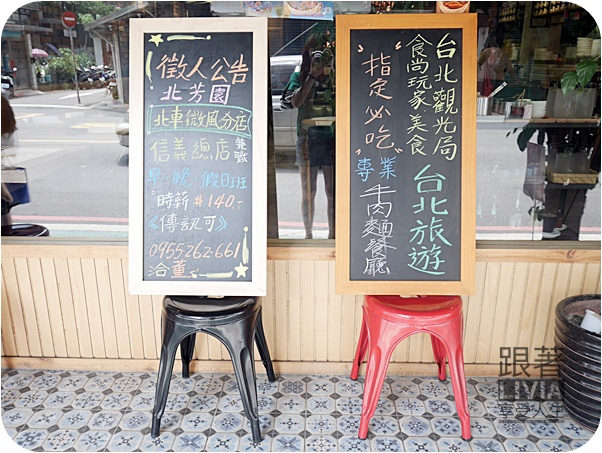 徵人公告
北芳園
北車微風分店
信義總店 兼職
早.晚.假日班
時薪$140.-
《傳訊可》
0955262-661
洽董
台北觀光局
食尚玩家美食
台北旅遊
"指定必吃"
專業
牛肉麵餐廳
跟著
LIVIA
享受人生